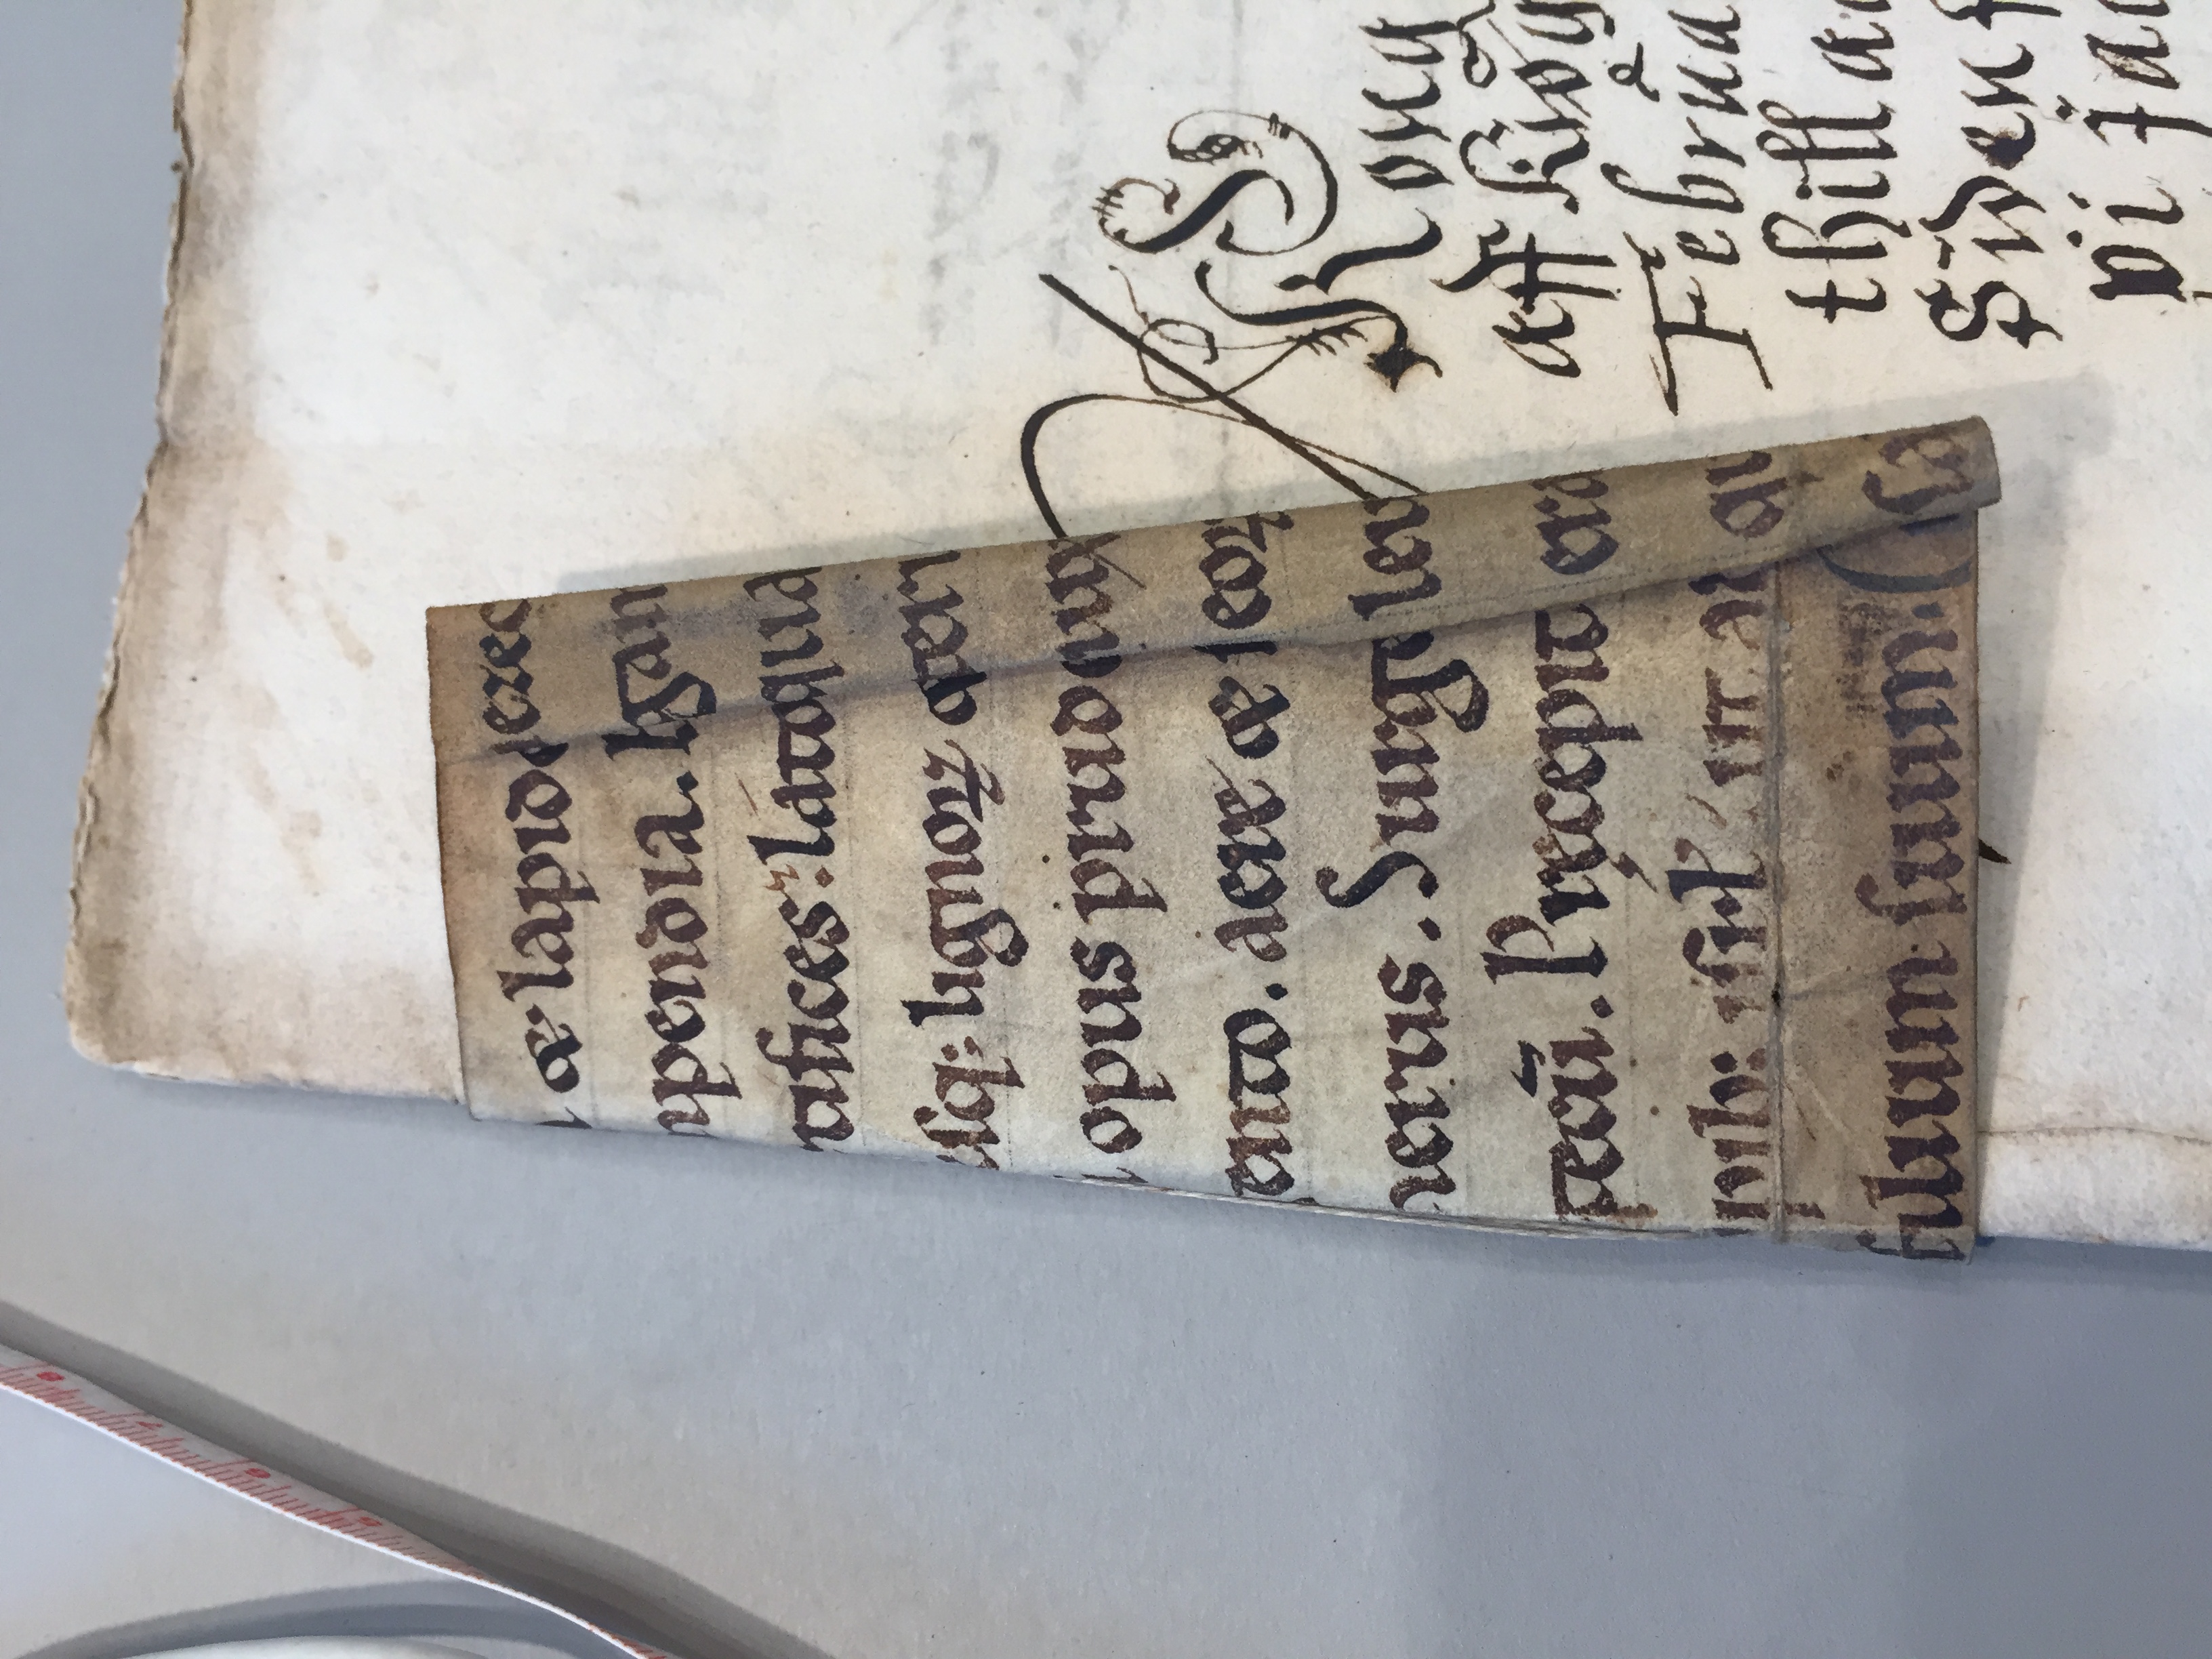 & lapid erec
npendia. lgam
tifices: lato qua
usq: lignoꝝ & teri
opus prud aux
ento. aere & f eoꝝ
nerus. Surge lev
tecū. Pręcepit era
pib: isrł ut ad qu
filium suum. sa
Kong
aff
Februa
thill
Siden f
vi Jac